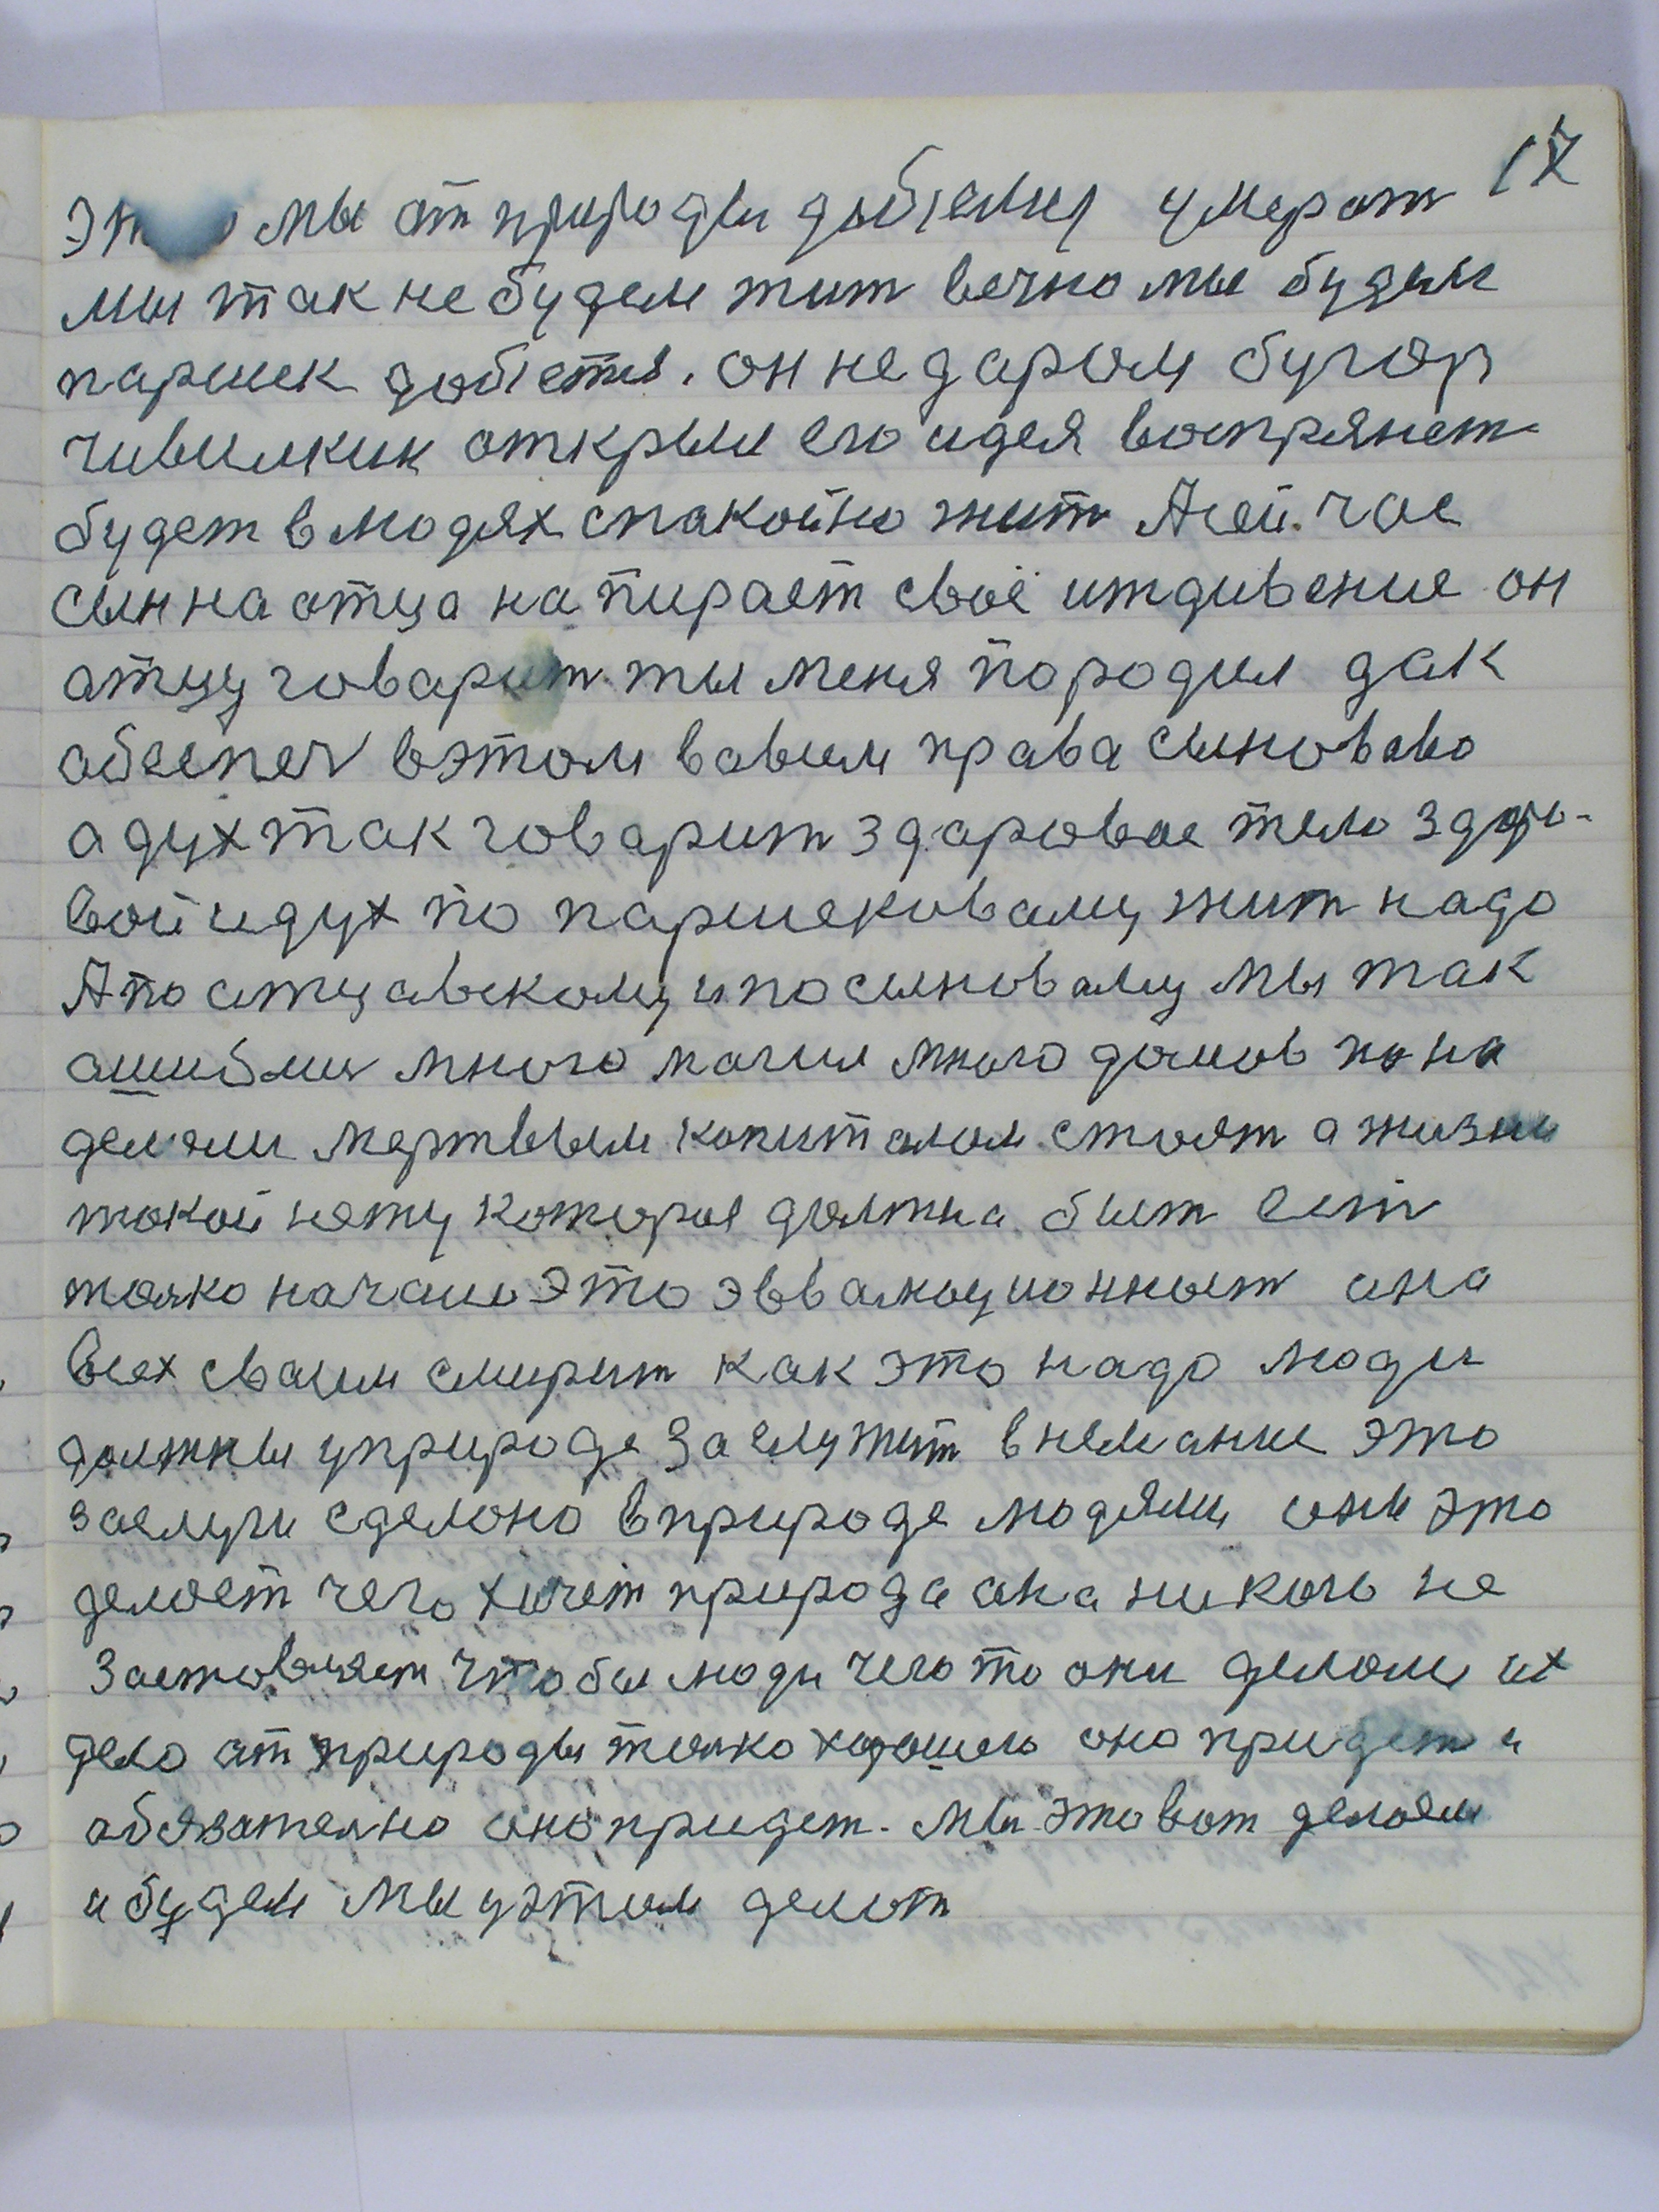 17
мы от природы добъемся умерат
мы так не будем жит вечно мы будем
паршек добъется. он не даром бугор
чивилкин открыл его идея воспрянет
будет в людях спакойно жит А сей.час
сын на отца на пирает своё иждивение он
атцу говарит ты меня породил дак
абеспеч в этом вовим права сыновево
а дух так говарит здаровое тело здоро-
вой и дух по паршековаму жит надо
А по атцавскому и по сыноваму мы так
ашиблис много магил много домов пона
делали мертвым копиталом стоят а жизни
токой нету которая должна быт ест
толко начало Это эввалюционным она
всех сваим смирит как это надо люди
должны у природе заслужит внимание это
заслуги сделоно в природе людями они это
делоет чего хичет природа она никого не
застовляет чтобы люди чего то они делоли их
дело ат природы толко хорошого оно придет и
абязателно оно придет. Мы это вот делоем
и будем мы у этом делот